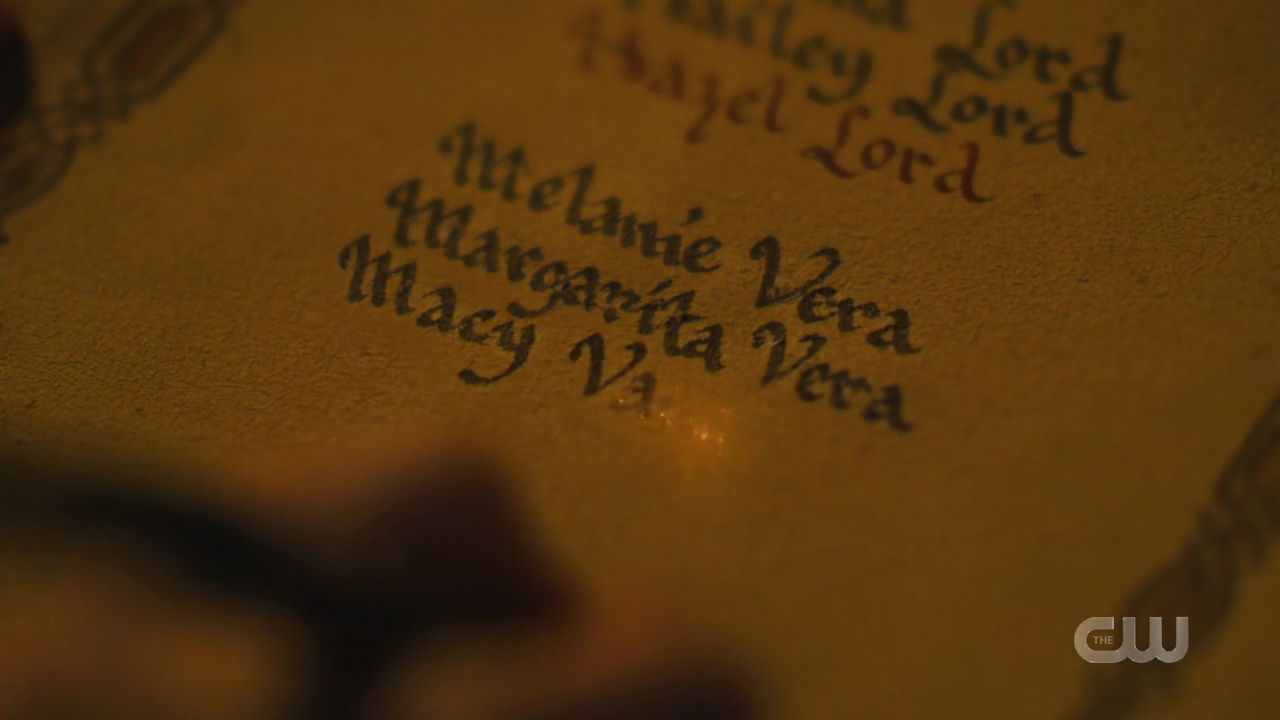 Lord
Hailey Lord
Hazel Lord
Melanie Vera
Margarita Vera
Macy Va
THE CW